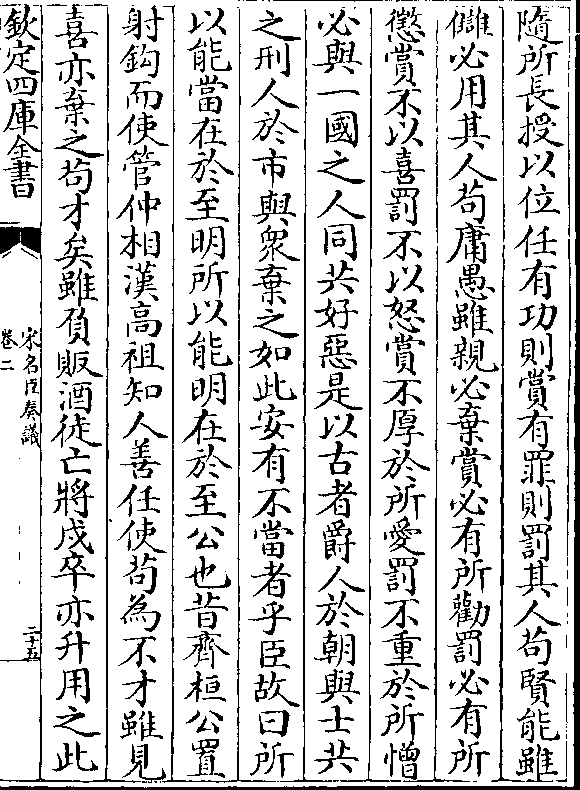 隨所長授以位任有功則賞有罪則罰其人苟賢能雖
讎必用其人苟庸愚雖親必棄賞必有所勸罰必有所
懲賞不以喜罰不以怒賞不厚於所愛罰不重於所憎
必與一國之人同共好惡是以古者爵人於朝與士共
之刑人於市與衆棄之如此安有不當者乎臣故曰所
以能當在於至明所以能明在於至公也昔齊桓公置
射鈎而使管仲相漢高祖知人善任使苟為不才雖見
喜亦棄之苟才矣雖負販酒徒亡將戍卒亦升用之此
欽定四庫全書
宋名臣奏議
卷二
二十五